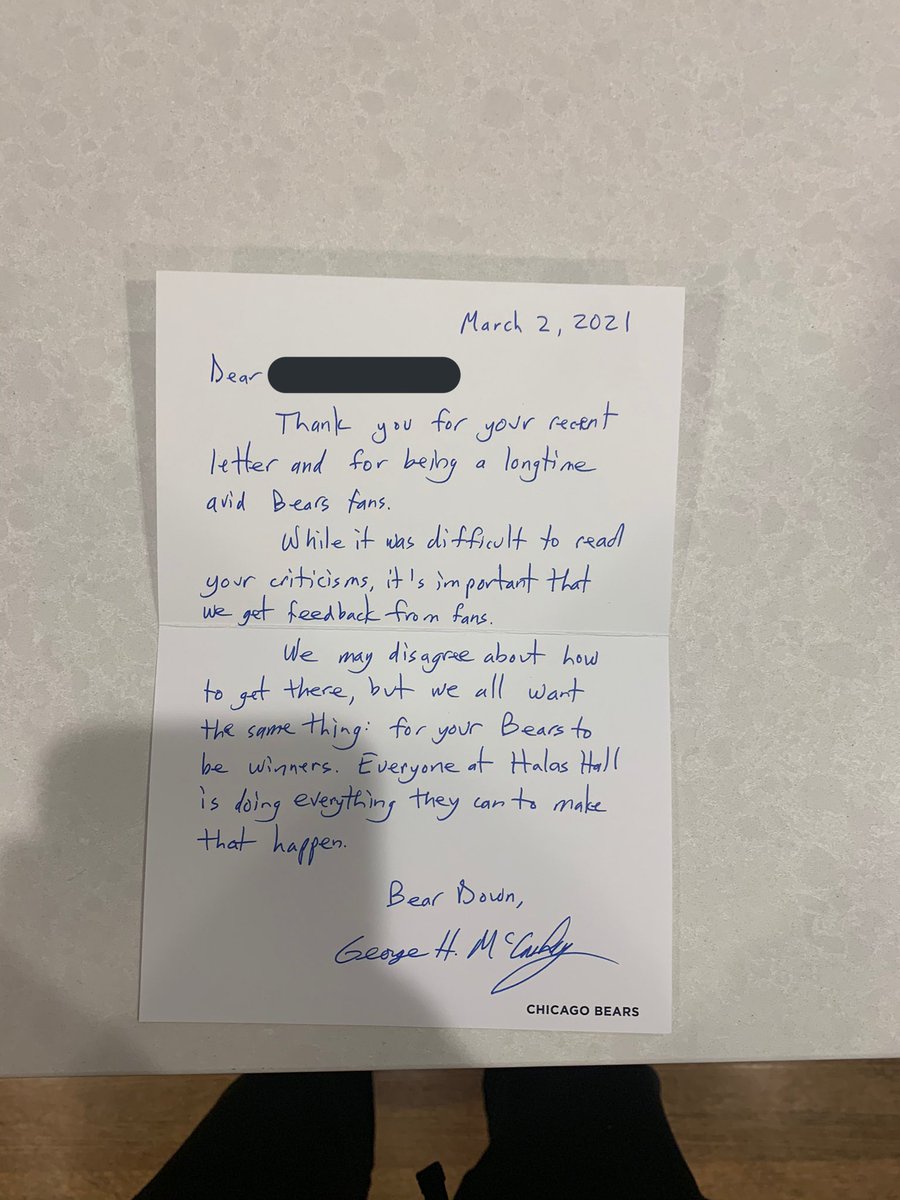 March 2, 2021
Dear
Thank you for your recent
letter and for being a longtime
avid Bears fans.
While it was difficult to read
your criticisms, it's important that
we get feedback from fans.
We may disagree about how
to get there, but we all want
the same thing: for your Bears to
be winners. Everyone at Halas Hall
is doing everything they can to make
that happen.
Bear Down,
George H. McCaskey
CHICAGO BEARS